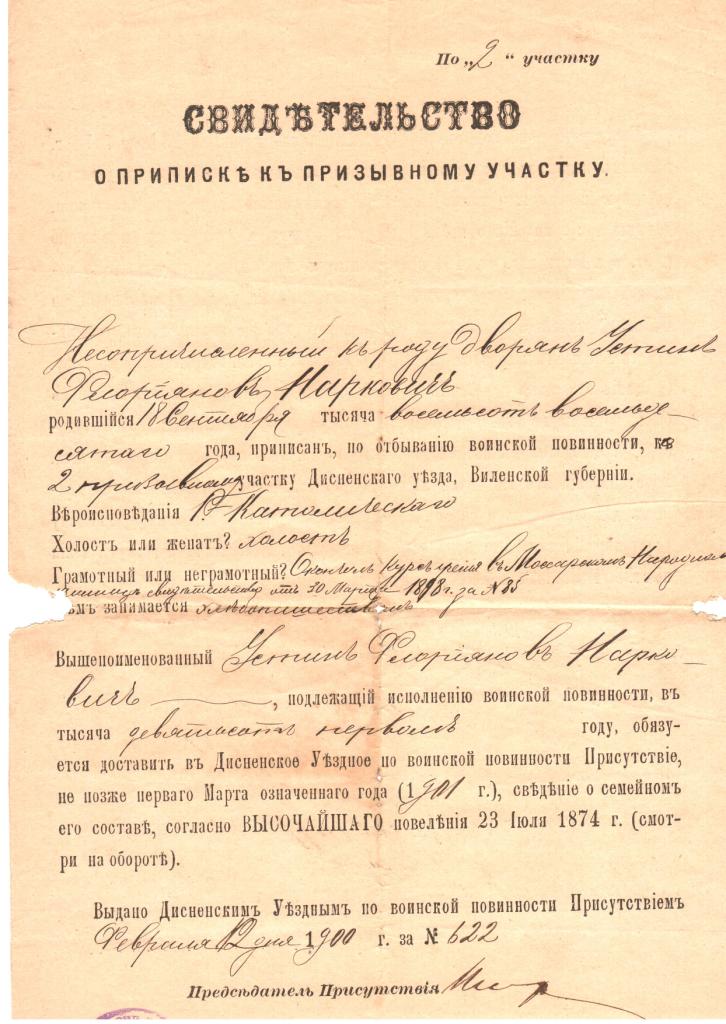 По „2“ участку
СВИДѢТЕЛЬСТВО
О ПРИПИСКѢ КЪ ПРИЗЫВНОМУ УЧАСТКУ.
Несопричисленный къ роду дворянъ Устинъ
Флоріяновъ Наркевичъ
родившійся 18 Сентября тысяча восемьсотъ восемьде-
сятаго года, приписан, по отбыванію воинской повинности, къ
2 призывному участку Дисненскаго уѣзда, Виленской губерніи.
Вѣроисповѣданія Р. Католическаго
Холост или женатъ? холостъ
Грамотный или неграмотный? Окончилъ Курсъ ученія въ Моссарскомъ Народномъ
свидѣтельство отъ 30 Марта 1898 г. за № 85
ѣмъ занимается хлѣбопашествомъ
Вышепоименованный Устинъ Флоріяновъ Нарке-
вичъ, подлежащій исполненію воинской повинности, въ
тысяча девятьсотъ первомъ году, обязу-
ется доставить въ Дисненское Уѣздное по воинской повинности Присутствіе,
не позже перваго Марта означеннаго года (1901 г.), свѣдѣніе о семейном
его составѣ, согласно ВЫСОЧАЙШАГО повелѣнія 23 Іюля 1874 г. (смот-
ри на оборотѣ).
Выдано Дисненским Уѣздным по воинской повинности Присутствіемъ
Февраля 12 дня 1900 г. за № 622
Предсѣдатель Присутствія